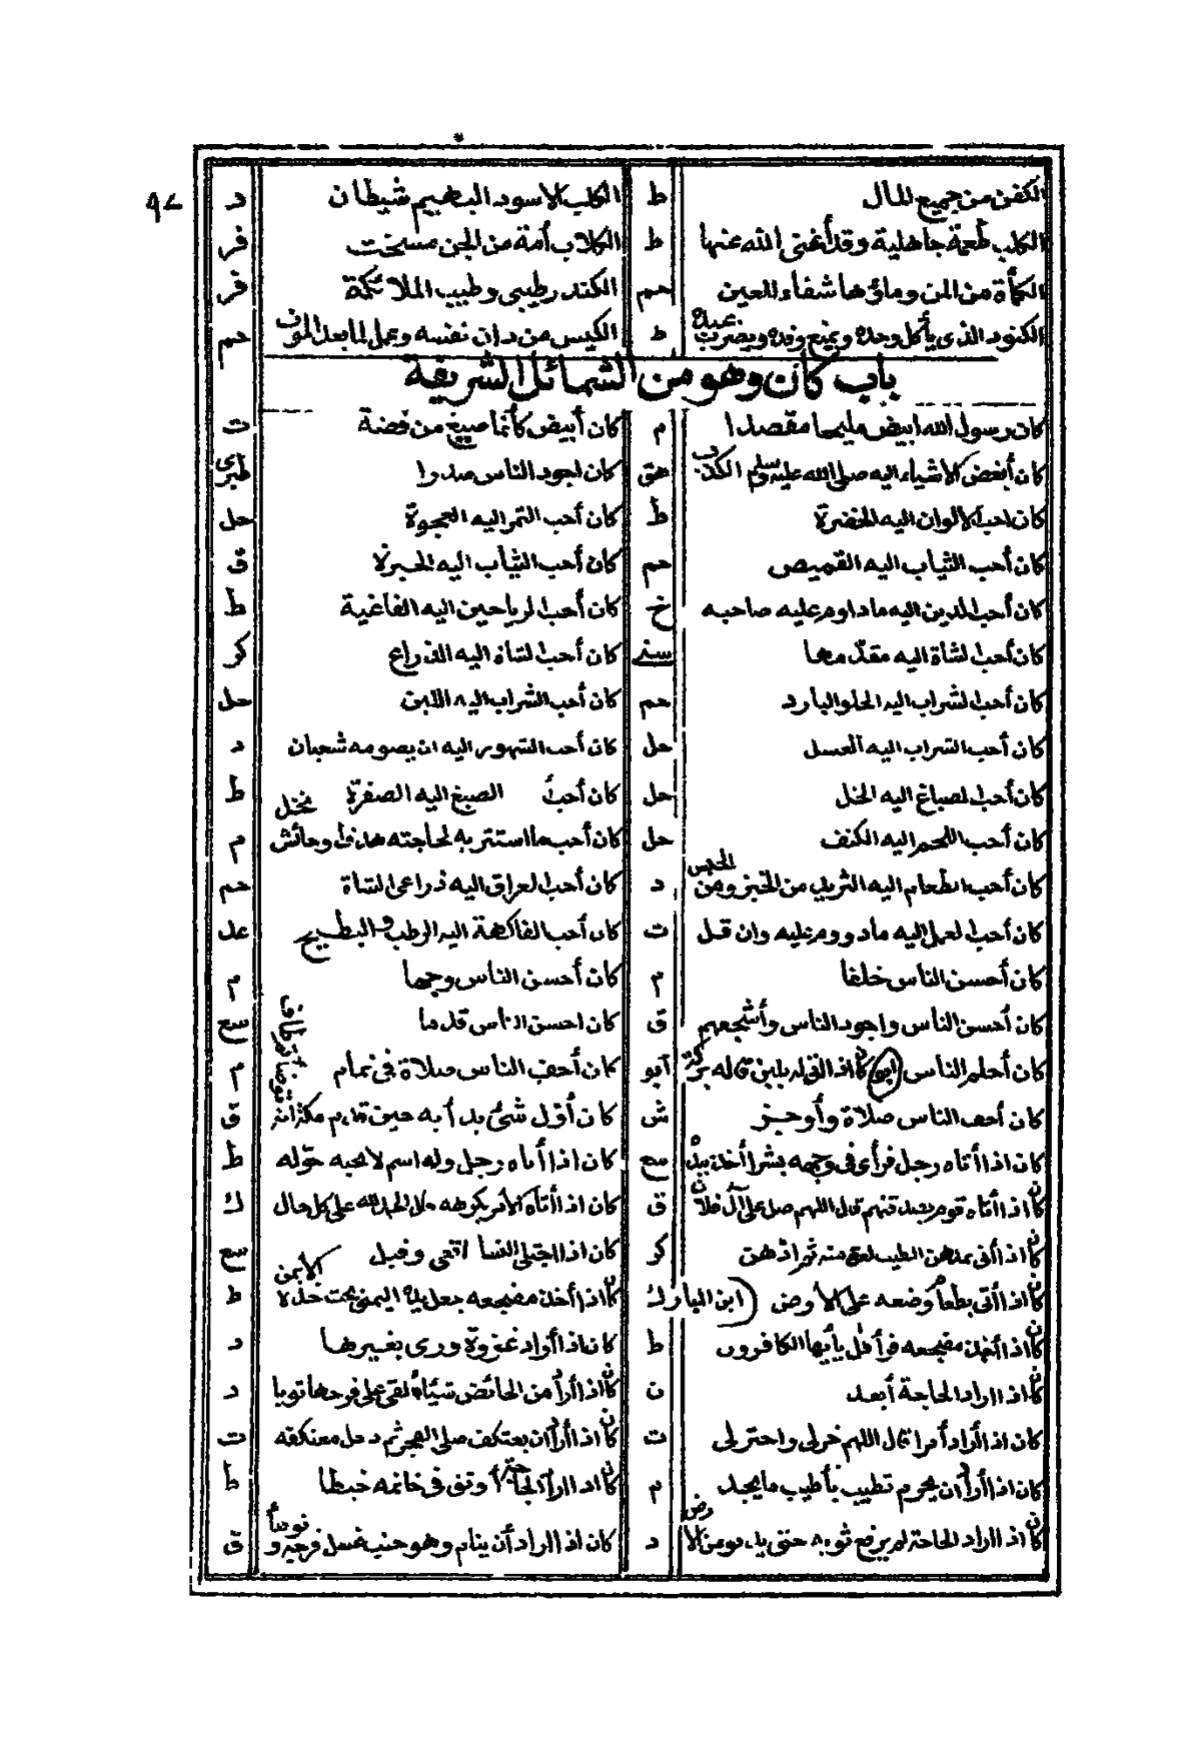 ٩٧
الكفن من جميع المال ط الكلب الاسود البهيم شيطان د
الكلب طعمة جاهلية وقد أغنى الله عنها ط الكلاب أمة من الجن مسخت فر
الكمأة من المن وماؤها شفاء للعين حم الكندر طيبى وطيب الملائكة فر
الكنود الذى يأكل وحده ويمنع رفده ويضرب عبده ط الكيس من دان نفسه وعمل لما بعد الموت حم
باب كان وهو من الشمائل الشريفة
كان رسول الله ابيض مليحا مقصدا م كان أبيض كأنما صيغ من فضة ت
كان أبغض الاشياء اليه صلى الله عليه وسلم الكذب هق كان اجود الناس صدرا طبرى
كان احب الالوان اليه الخضرة ط كان أحب التمر اليه العجوة حل
كان أحب الثياب اليه القميص حم كان أحب الثياب اليه الحبرة ق
كان أحب الدين اليه ما داوم عليه صاحبه خ كان أحب الرياحين اليه الفاغية ط
كان أحب الشاة اليه مقدمها سنى كان أحب الشاة اليه الذراع كر
كان أحب الشراب اليه الحلو البارد حم كان أحب الشراب اليه اللبن حل
كان أحب الشراب اليه العسل حل كان أحب الشهور اليه ان يصومه شعبان د
كان أحب الصباغ اليه الخل حل كان أحب الصبغ اليه الصفرة ط
كان أحب اللحم اليه الكتف حل كان أحب ما استتر به لحاجته هدف او حائش نخل م
كان أحب الطعام اليه الثريد من الخبز ومن الحيس د كان أحب العراق اليه ذراعى الشاة حم
كان أحب العمل اليه ما دووم عليه وان قل ت كان أحب الفاكهة اليه الرطب والبطيخ عد
كان أحسن الناس خلقا م كان أحسن الناس وجها م
كان أحسن الناس واجود الناس وأشجعهم ق كان احسن الناس قدما سع
كان أحلم الناس أبو كان اذا اتى له بلبن قال بركة كان أخف الناس صلاة فى تمام م
كان أخف الناس صلاة وأوجز ش كان أول شئ بدأ به حين قدم مكة انه توضأ ثم طاف ق
كان اذا أتاه رجل فرأى فى وجهه بشرا أخذ بيده سع كان اذا أتاه رجل وله اسم لا يحبه حوله ط
كان اذا أتاه قوم بصدقتهم قال اللهم صل على آل فلان ق كان اذا أتاه الأمر يكرهه قال الحمد لله على كل حال ك
كان اذا أتى بمدهن الطيب لعق منه ثم ادهن كر كان اذا اجتلى النسا اقعى وقبل سع
كان اذا أتى بطعام وضعه على الأرض (ابن المبارك كان اذا أخذ مضجعه جعل يده اليمنى تحت خده الأيمن ط
كان اذا أخذ مضجعه قرأ قل يأيها الكافرون ط كان اذا أراد غزوة ورى بغيرها د
كان اذا اراد الحاجة أبعد ن كان اذا أراد من الحائض شيئا ألقى على فرجها ثوبا د
كان اذا أراد أمرا قال اللهم خر لى واختر لى ت كان اذا أراد ان يعتكف صلى الفجر ثم دخل معتكفه ت
كان اذا أراد ان يحرم تطيب بأطيب ما يجد م كان اذا اراد الحاجة أوثق فى خاتمه خيطا ط
كان اذا اراد الحاجة لم يرفع ثوبه حتى يدنو من الارض د كان اذا اراد أن ينام وهو جنب غسل فرجه وتوضأ ق